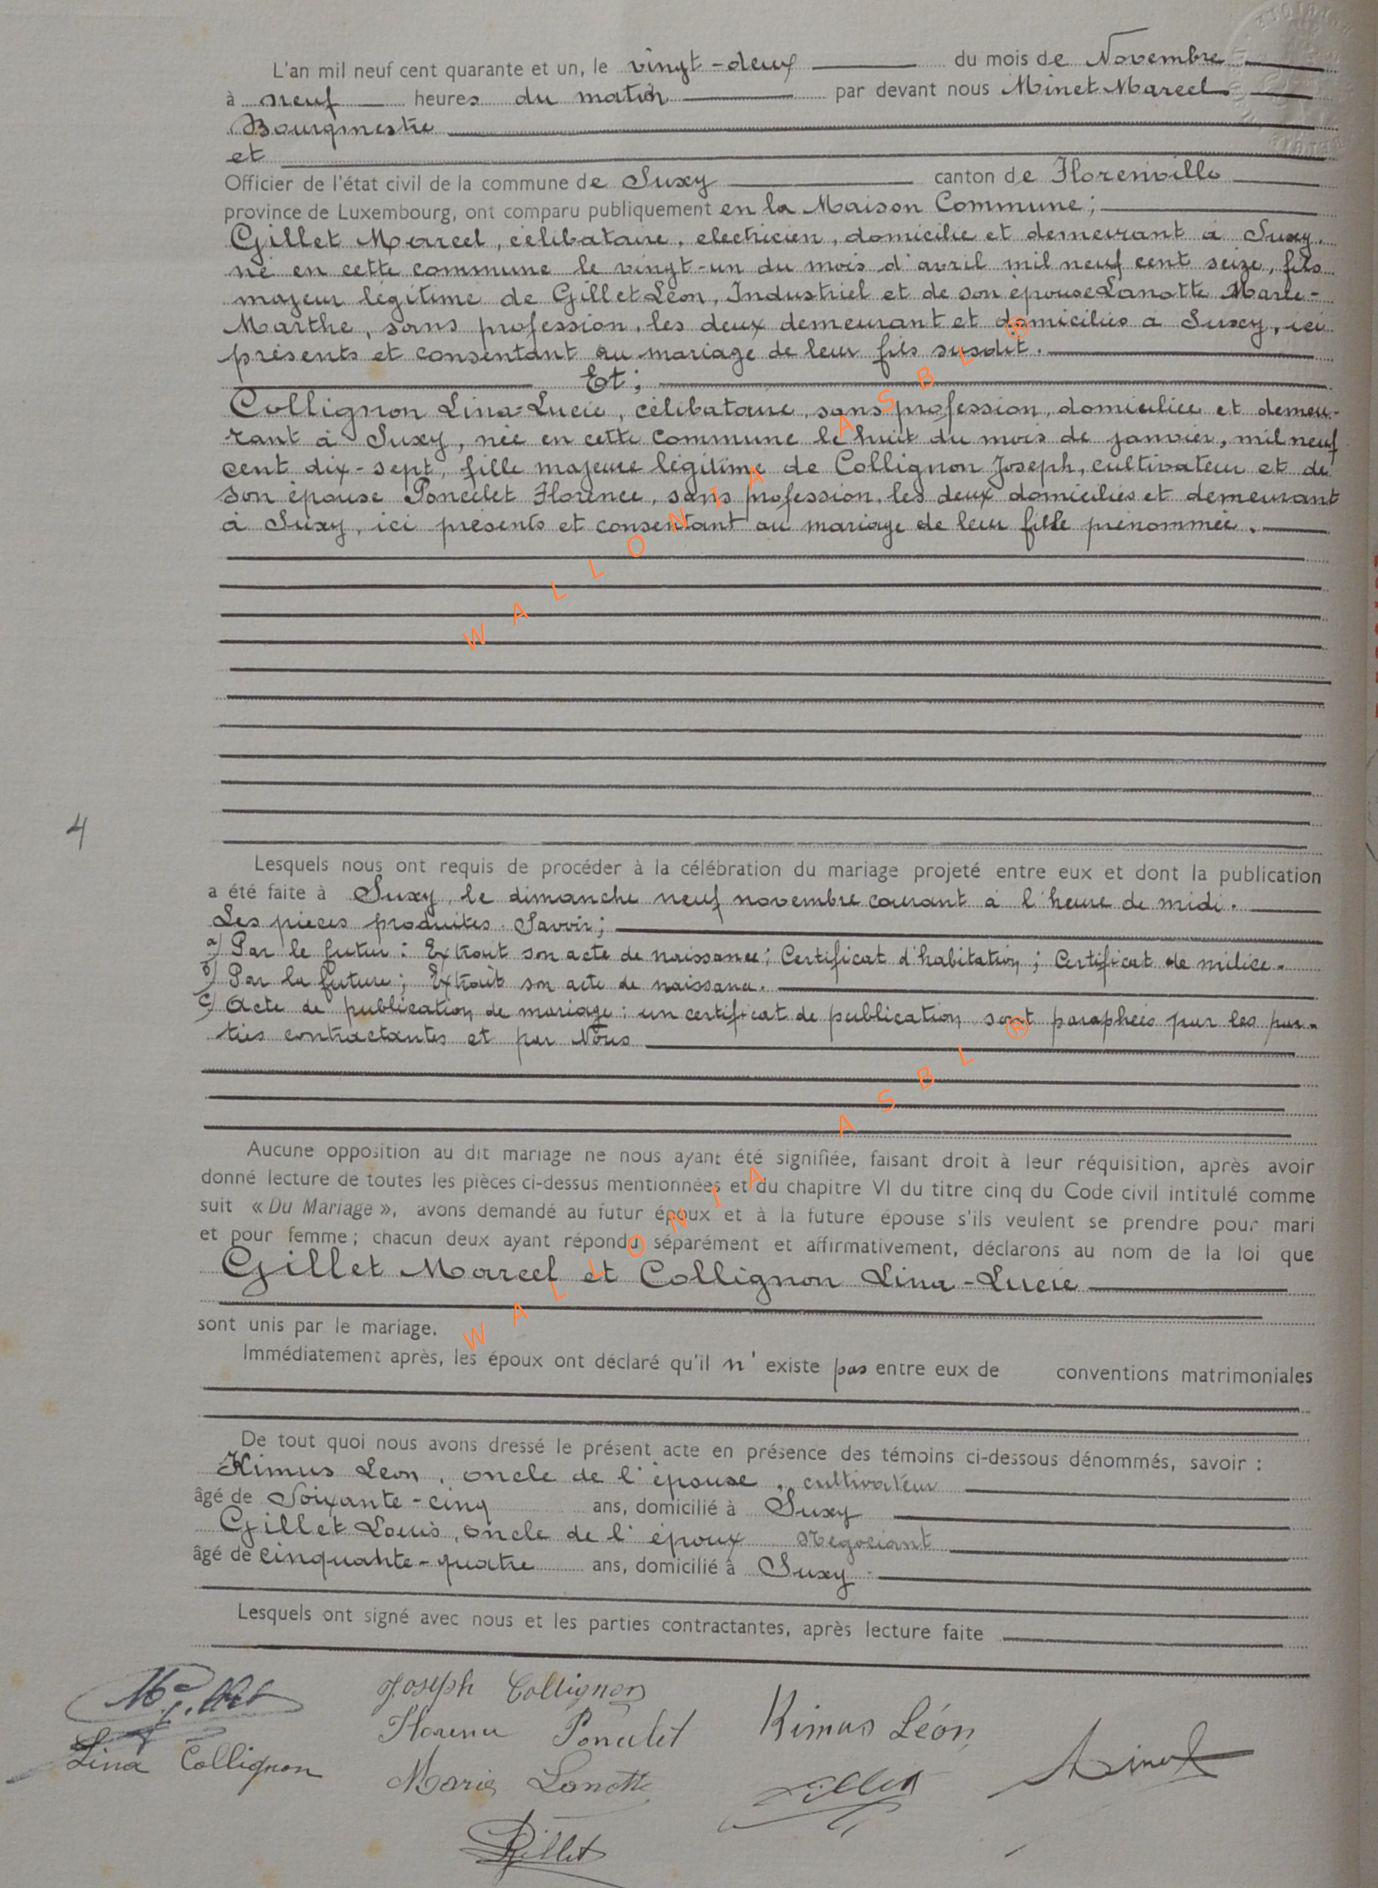 L'an mil neuf cent quarante et un, le vingt-deux du mois de Novembre
à neuf heures du matin par devant nous Minet Marcel
Bourgmestre
et
Officier de l'état civil de la commune de Suxy canton de Florenville
province de Luxembourg, ont comparu publiquement en la Maison Commune ;
Gillet Marcel, célibataire, électricien, domicilié et demeurant à Suxy,
né en cette commune le vingt-un du mois d'avril mil neuf cent seize, fils
majeur légitime de Gillet Léon, Industriel et de son épouse Lanotte Marie-
Marthe, sans profession, les deux demeurant et domiciliés à Suxy, ici
présents et consentant au mariage de leur fils susdit.
Et ;
Collignon Lina-Lucie, célibataire, sans profession, domiciliée et demeu-
rant à Suxy, née en cette commune le huit du mois de janvier, mil neuf
cent dix-sept, fille majeure légitime de Collignon Joseph, cultivateur et de
son épouse Poncelet Florence, sans profession, les deux domiciliés et demeurant
à Suxy, ici présents et consentant au mariage de leur fille prénommée.
WALLONIA ASBL ®
4
Lesquels nous ont requis de procéder à la célébration du mariage projeté entre eux et dont la publication
a été faite à Suxy, le dimanche neuf novembre courant à l'heure de midi.
Les pièces produites. Savoir ;
a) Par le futur : Extrait son acte de naissance ; Certificat d'habitation ; Certificat de milice.
b) Par la future ; Extrait son acte de naissance.
c) Acte de publication de mariage : un certificat de publication sont paraphées par les par-
ties contractantes et par Nous
Aucune opposition au dit mariage ne nous ayant été signifiée, faisant droit à leur réquisition, après avoir
donné lecture de toutes les pièces ci-dessus mentionnées et du chapitre VI du titre cinq du Code civil intitulé comme
suit « Du Mariage », avons demandé au futur époux et à la future épouse s'ils veulent se prendre pour mari
et pour femme ; chacun deux ayant répondu séparément et affirmativement, déclarons au nom de la loi que
Gillet Marcel et Collignon Lina-Lucie
WALLONIA ASBL ®
sont unis par le mariage.
Immédiatement après, les époux ont déclaré qu'il n'existe pas entre eux de conventions matrimoniales
De tout quoi nous avons dressé le présent acte en présence des témoins ci-dessous dénommés, savoir :
Kimus Leon, oncle de l'épouse, cultivateur
âgé de Soixante-cinq ans, domicilié à Suxy
Gillet Louis, oncle de l'époux Négociant
âgé de cinquante-quatre ans, domicilié à Suxy
Lesquels ont signé avec nous et les parties contractantes, après lecture faite
Mel Gillet
Joseph Collignon
Florence Poncelet
Kimus Léon
Lina Collignon
Marie Lanotte
Gillet
Minet
Gillet